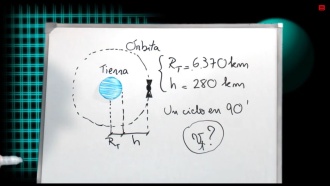 Órbita
Tierra
R_T
h
R_T = 6370 km
h = 280 km
Un ciclo en 90'